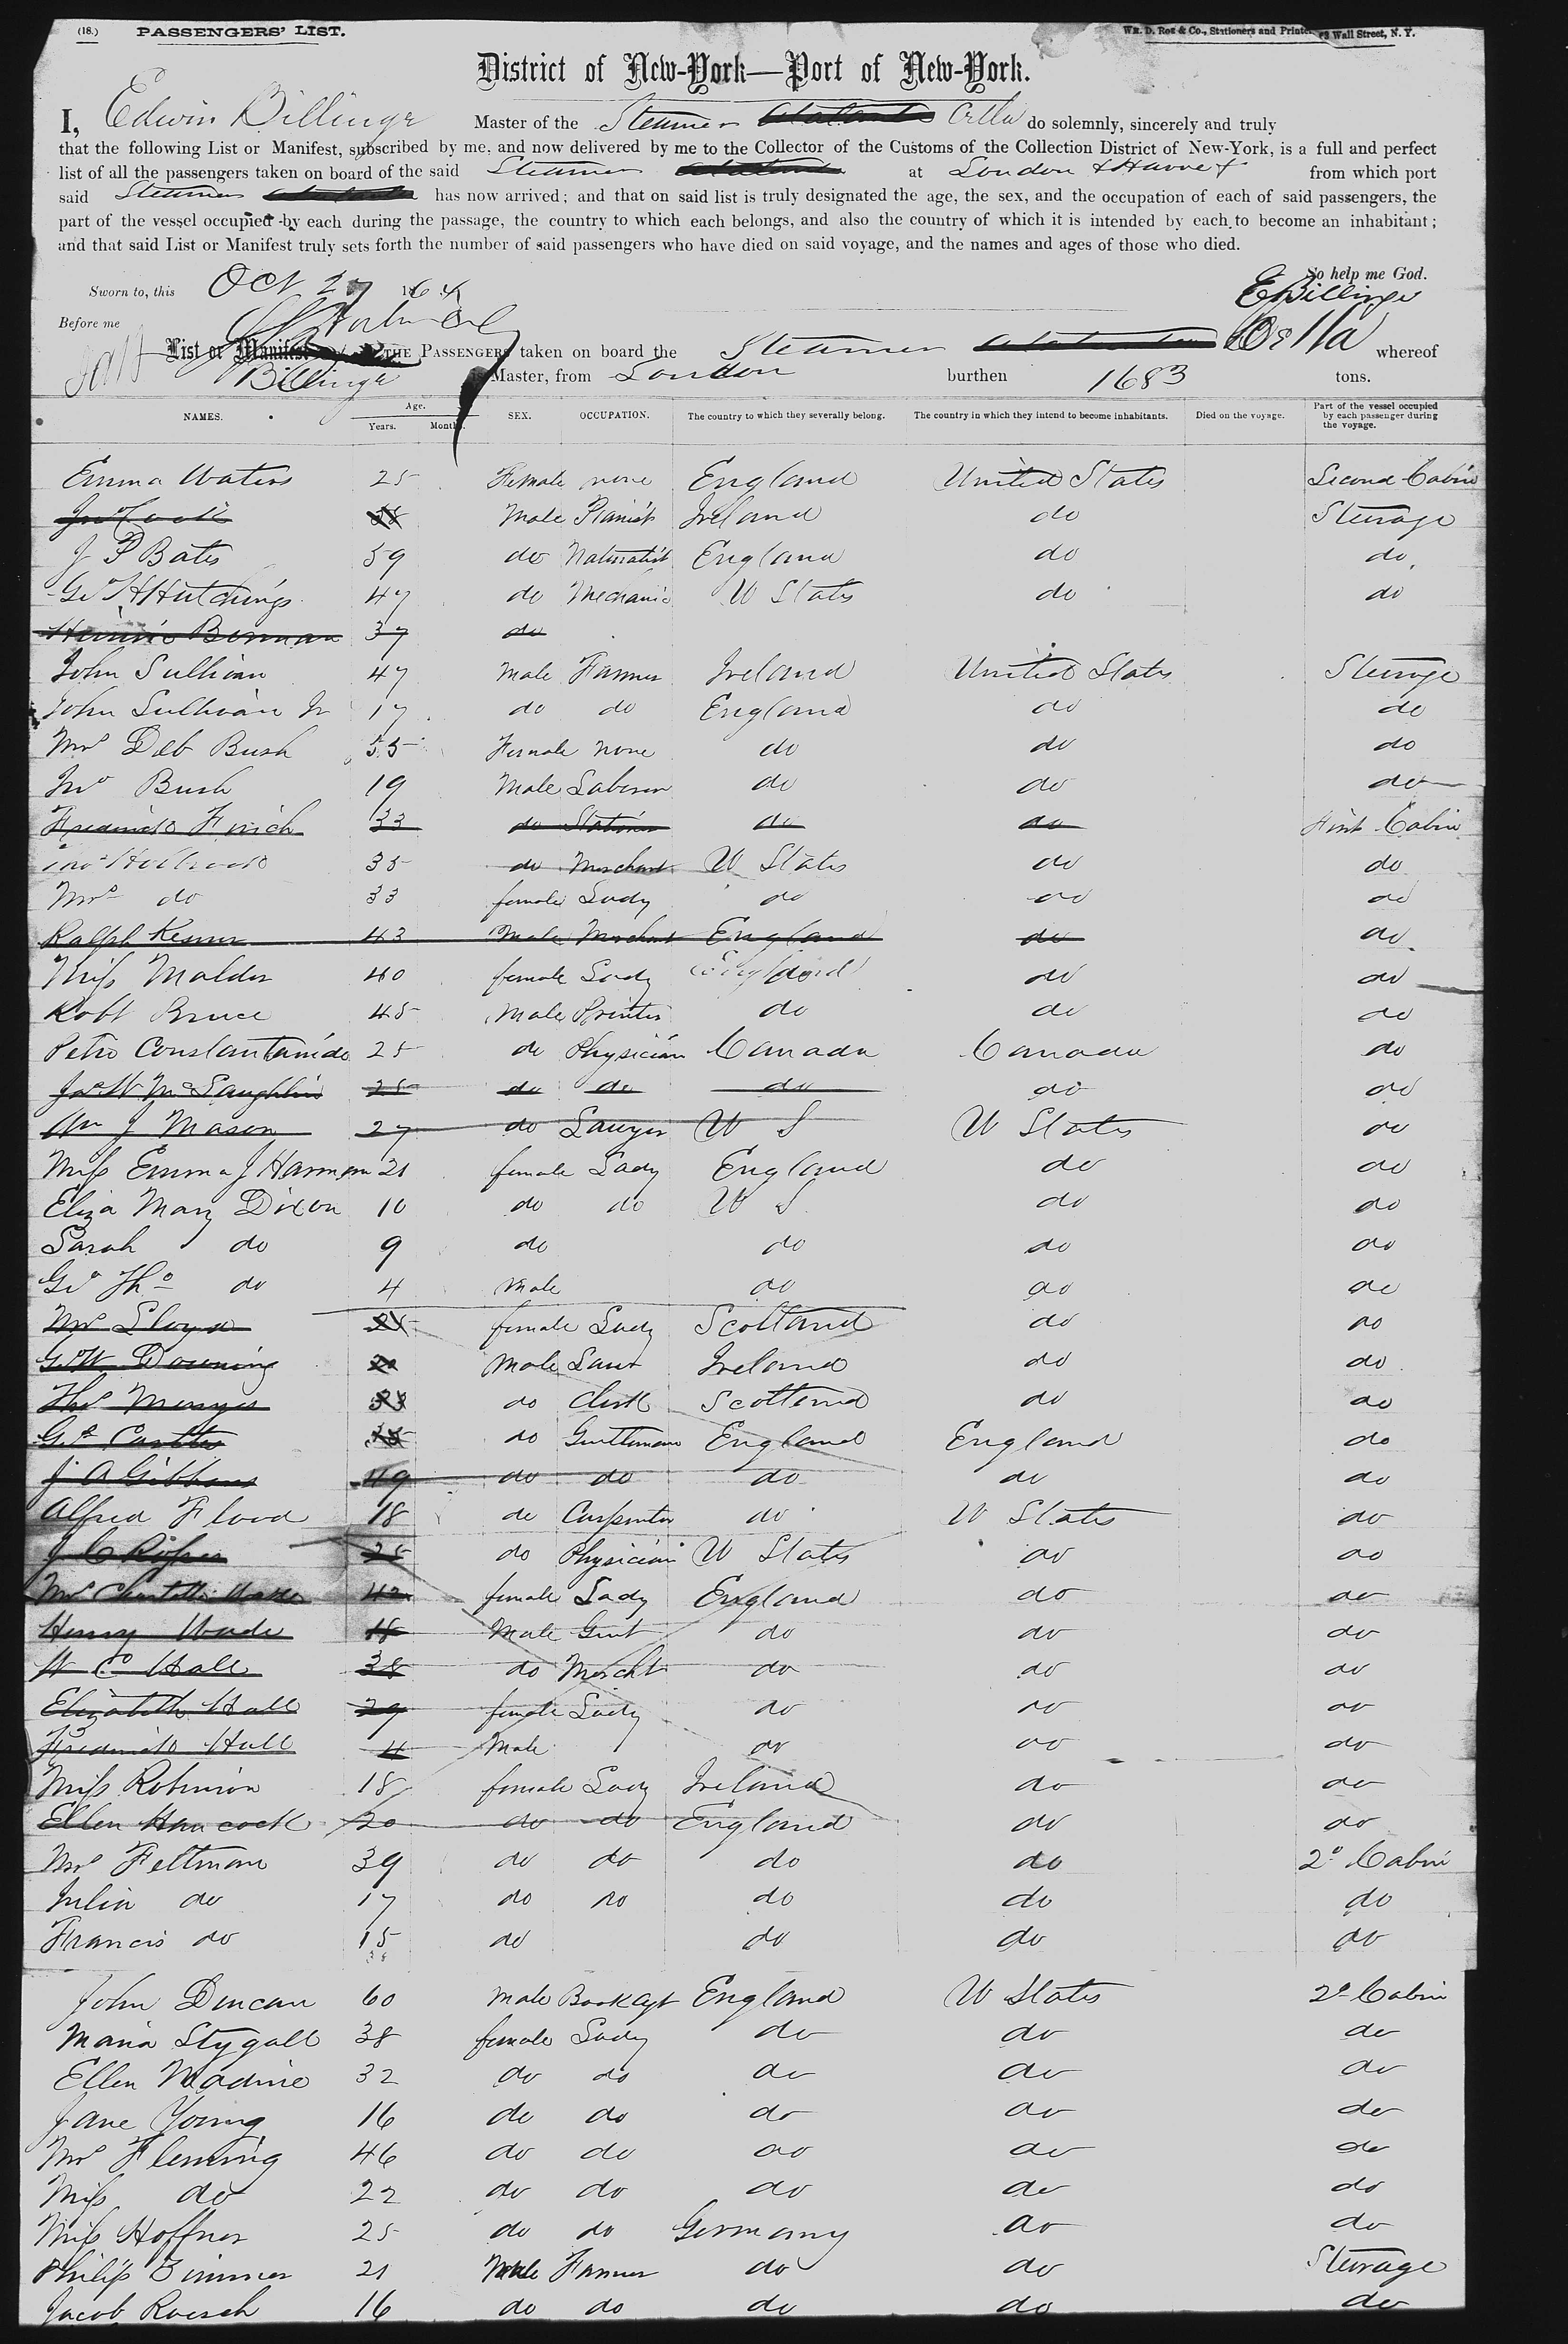 (18.) PASSENGERS' LIST. Wm. D. Roe & Co., Stationers and Printers 73 Wall Street, N. Y.
District of New-York—Port of New-York.
I, Edwin Billinge Master of the Steamer Atalanta Cella do solemnly, sincerely and truly
that the following List or Manifest, subscribed by me, and now delivered by me to the Collector of the Customs of the Collection District of New-York, is a full and perfect
list of all the passengers taken on board of the said Steamer Atalanta at London & Havre from which port
said Steamer Atalanta has now arrived; and that on said list is truly designated the age, the sex, and the occupation of each of said passengers, the
part of the vessel occupied by each during the passage, the country to which each belongs, and also the country of which it is intended by each to become an inhabitant;
and that said List or Manifest truly sets forth the number of said passengers who have died on said voyage, and the names and ages of those who died.
So help me God.
Sworn to, this Oct 27 1864 E Billinge
Before me
List or Manifest of THE PASSENGERS taken on board the Steamer Cella whereof
Billinge is Master, from London burthen 1683 tons.
NAMES. Age. Years. Months. SEX. OCCUPATION. The country to which they severally belong. The country in which they intend to become inhabitants. Died on the voyage. Part of the vessel occupied by each passenger during the voyage.
Emma Waters 25 Female none England United States Second Cabin
Jno Cook 28 Male Pianist Ireland do Steerage
J P Bates 59 do Naturalist England do do
Geo H Hutchings 47 do Mechanic U States do do
Berman 37 do
John Sullivan 47 Male Farmer Ireland United States Steerage
John Sullivan Jr 17 do do England do do
Mrs Deb Bush 55 Female none do do do
Jno Bush 19 Male Laborer do do do
Frederick Finch 33 do Stationer do do First Cabin
Jno Holbrook 35 do Merchant U States do do
Mrs do 33 female Lady do do do
Ralph Kesner 43 Male Merchant England do do
Miss Malder 40 female Lady England do do
Robt Bruce 45 Male Printer do do do
Petro Constantanido 25 do Physician Canada Canada do
Jas W McLaughlin 25 do do do do do
Wm J Mason 27 do Lawyer U S U States do
Miss Emma J Harmon 21 female Lady England do do
Eliza Mary Dixon 10 do do U S do do
Sarah do 9 do do do do
Geo Tho do 4 Male do do do
Mrs Lloyd 25 female Lady Scotland do do
G W Downing 20 Male Ireland do do
Thos 33 do Clerk Scotland do do
Geo 25 do Gentleman England England do
J A Gibbons 49 do do do do do
Alfred Flood 18 do Carpenter do U States do
J C 25 do Physician U States do do
Mrs Charlotte Wade 42 female Lady England do do
Henry Wade 18 Male Gent do do do
W C Hall 38 do Mercht do do do
Elizabeth Hall 29 female Lady do do do
Frederick Hall 4 Male do do do
Miss Robinson 18 female Lady Ireland do do
Ellen Hancock 20 do do England do do
Mrs Feltman 39 do do do do 2o Cabin
Julia do 17 do do do do do
Francis do 15 do do do do
John Duncan 60 Male Book Agt England U States 2o Cabin
Maria Stygall 38 female Lady do do do
Ellen Madine 32 do do do do do
Jane Young 16 do do do do do
Mrs Fleming 46 do do do do do
Miss do 22 do do do do do
Miss Hoffner 25 do do Germany do do
Philip Zimmer 21 Male Farmer do do Steerage
Jacob Roesch 16 do do do do do